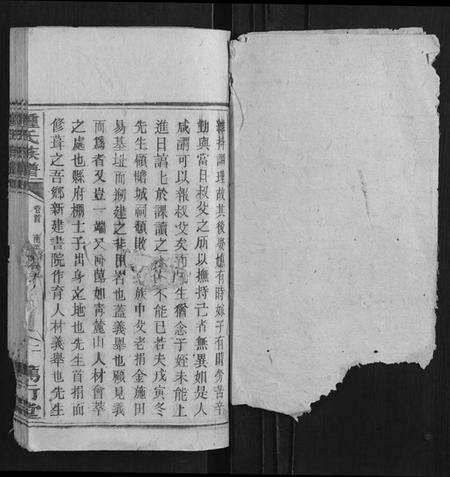 維持調理故其後婆媳有時嫁子有時勞苦辛
勤與當日叔父之所以撫持亡者無異姻是人
咸謂可以報叔父矣而先生猶念子姪未能上
進日諄七於課讀之不能已若夫戊寅冬
先生領賭城祠頹敗族中父老捐金施田
易基址而捌建之昔者也蓋義舉也顧見義
而為者又豈一端又萬如靑蓖山人材會萃
之處也縣府棚士子出身之地也先生首捐而
修葺之吾鄉新建書院作育人材義舉也先生
鍾氏族譜
卷首
二
萬石堂